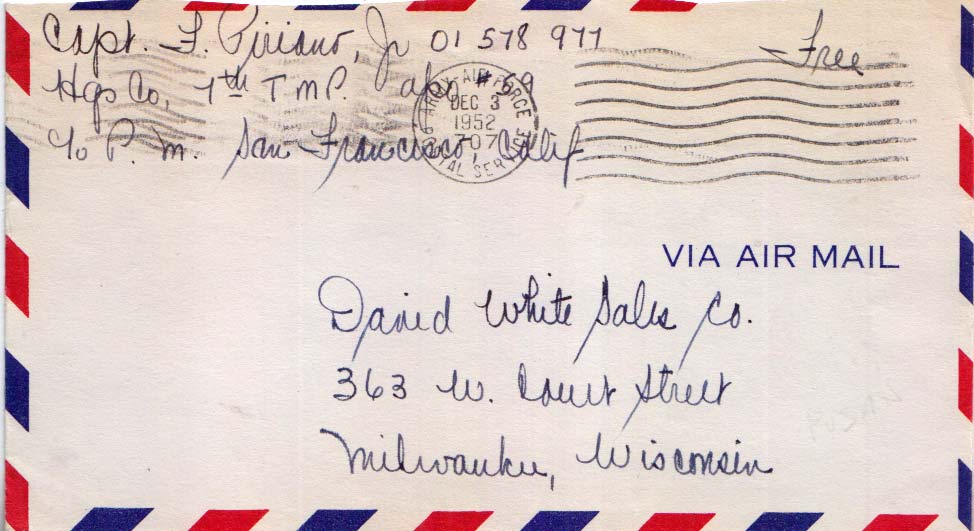 Capt. F. Piriano, Jr 01 578 977
Free
Hqs Co, 7th T M P. apo # 59
c/o P. M. San Francisco, Calif
ARMY-AIR FORCE
DEC 3
1952
707
POSTAL SERVICE
VIA AIR MAIL
David White Sales Co.
363 W. Court Street
Milwaukee, Wisconsin